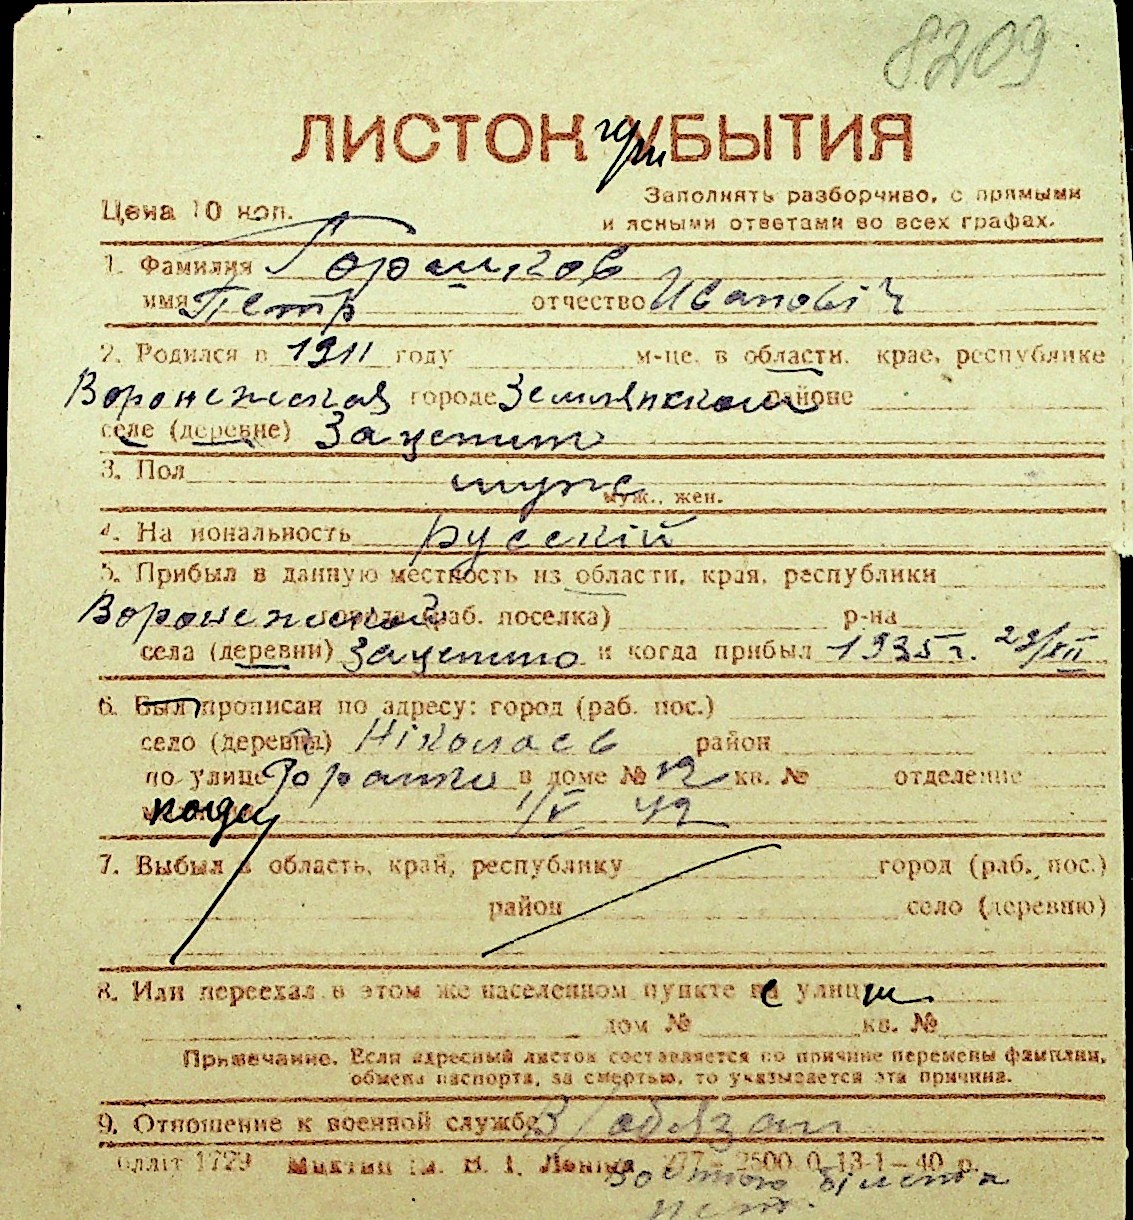 8209
ЛИСТОК при УБЫТИЯ
Цена 10 коп.
Заполнять разборчиво, с прямыми
и ясными ответами во всех графах.
1. Фамилия Горшков
имя Петр отчество Івановіч
2. Родился в 1911 году м-це, в области, крае, республике
Воронежская городе Землянском районе
селе (деревне) Зацепино
3. Пол муж
муж., жен.
4. Национальность русскій
5. Прибыл в данную местность из области, края, республики
Воронежской города (раб. поселка) р-на
села (деревни) Зацепино и когда прибыл 1935 г. 29/XII
6. Был прописан по адресу: город (раб. пос.)
село (деревня) Ніколаев район
по улице в доме № 12 кв. № отделение
когда 1/V 42
7. Выбыл в область, край, республику город (раб. пос.)
район село (деревню)
8. Или переехал в этом же населенном пункте с улицы
дом № кв. №
Примечание. Если адресный листок составляется по причине перемены фамилии,
обмена паспорта, за смертью, то указывается эта причина.
9. Отношение к военной службе В/обязан
1729 Ленина 277-2500 0 13-1-40 р.
білета
нет.